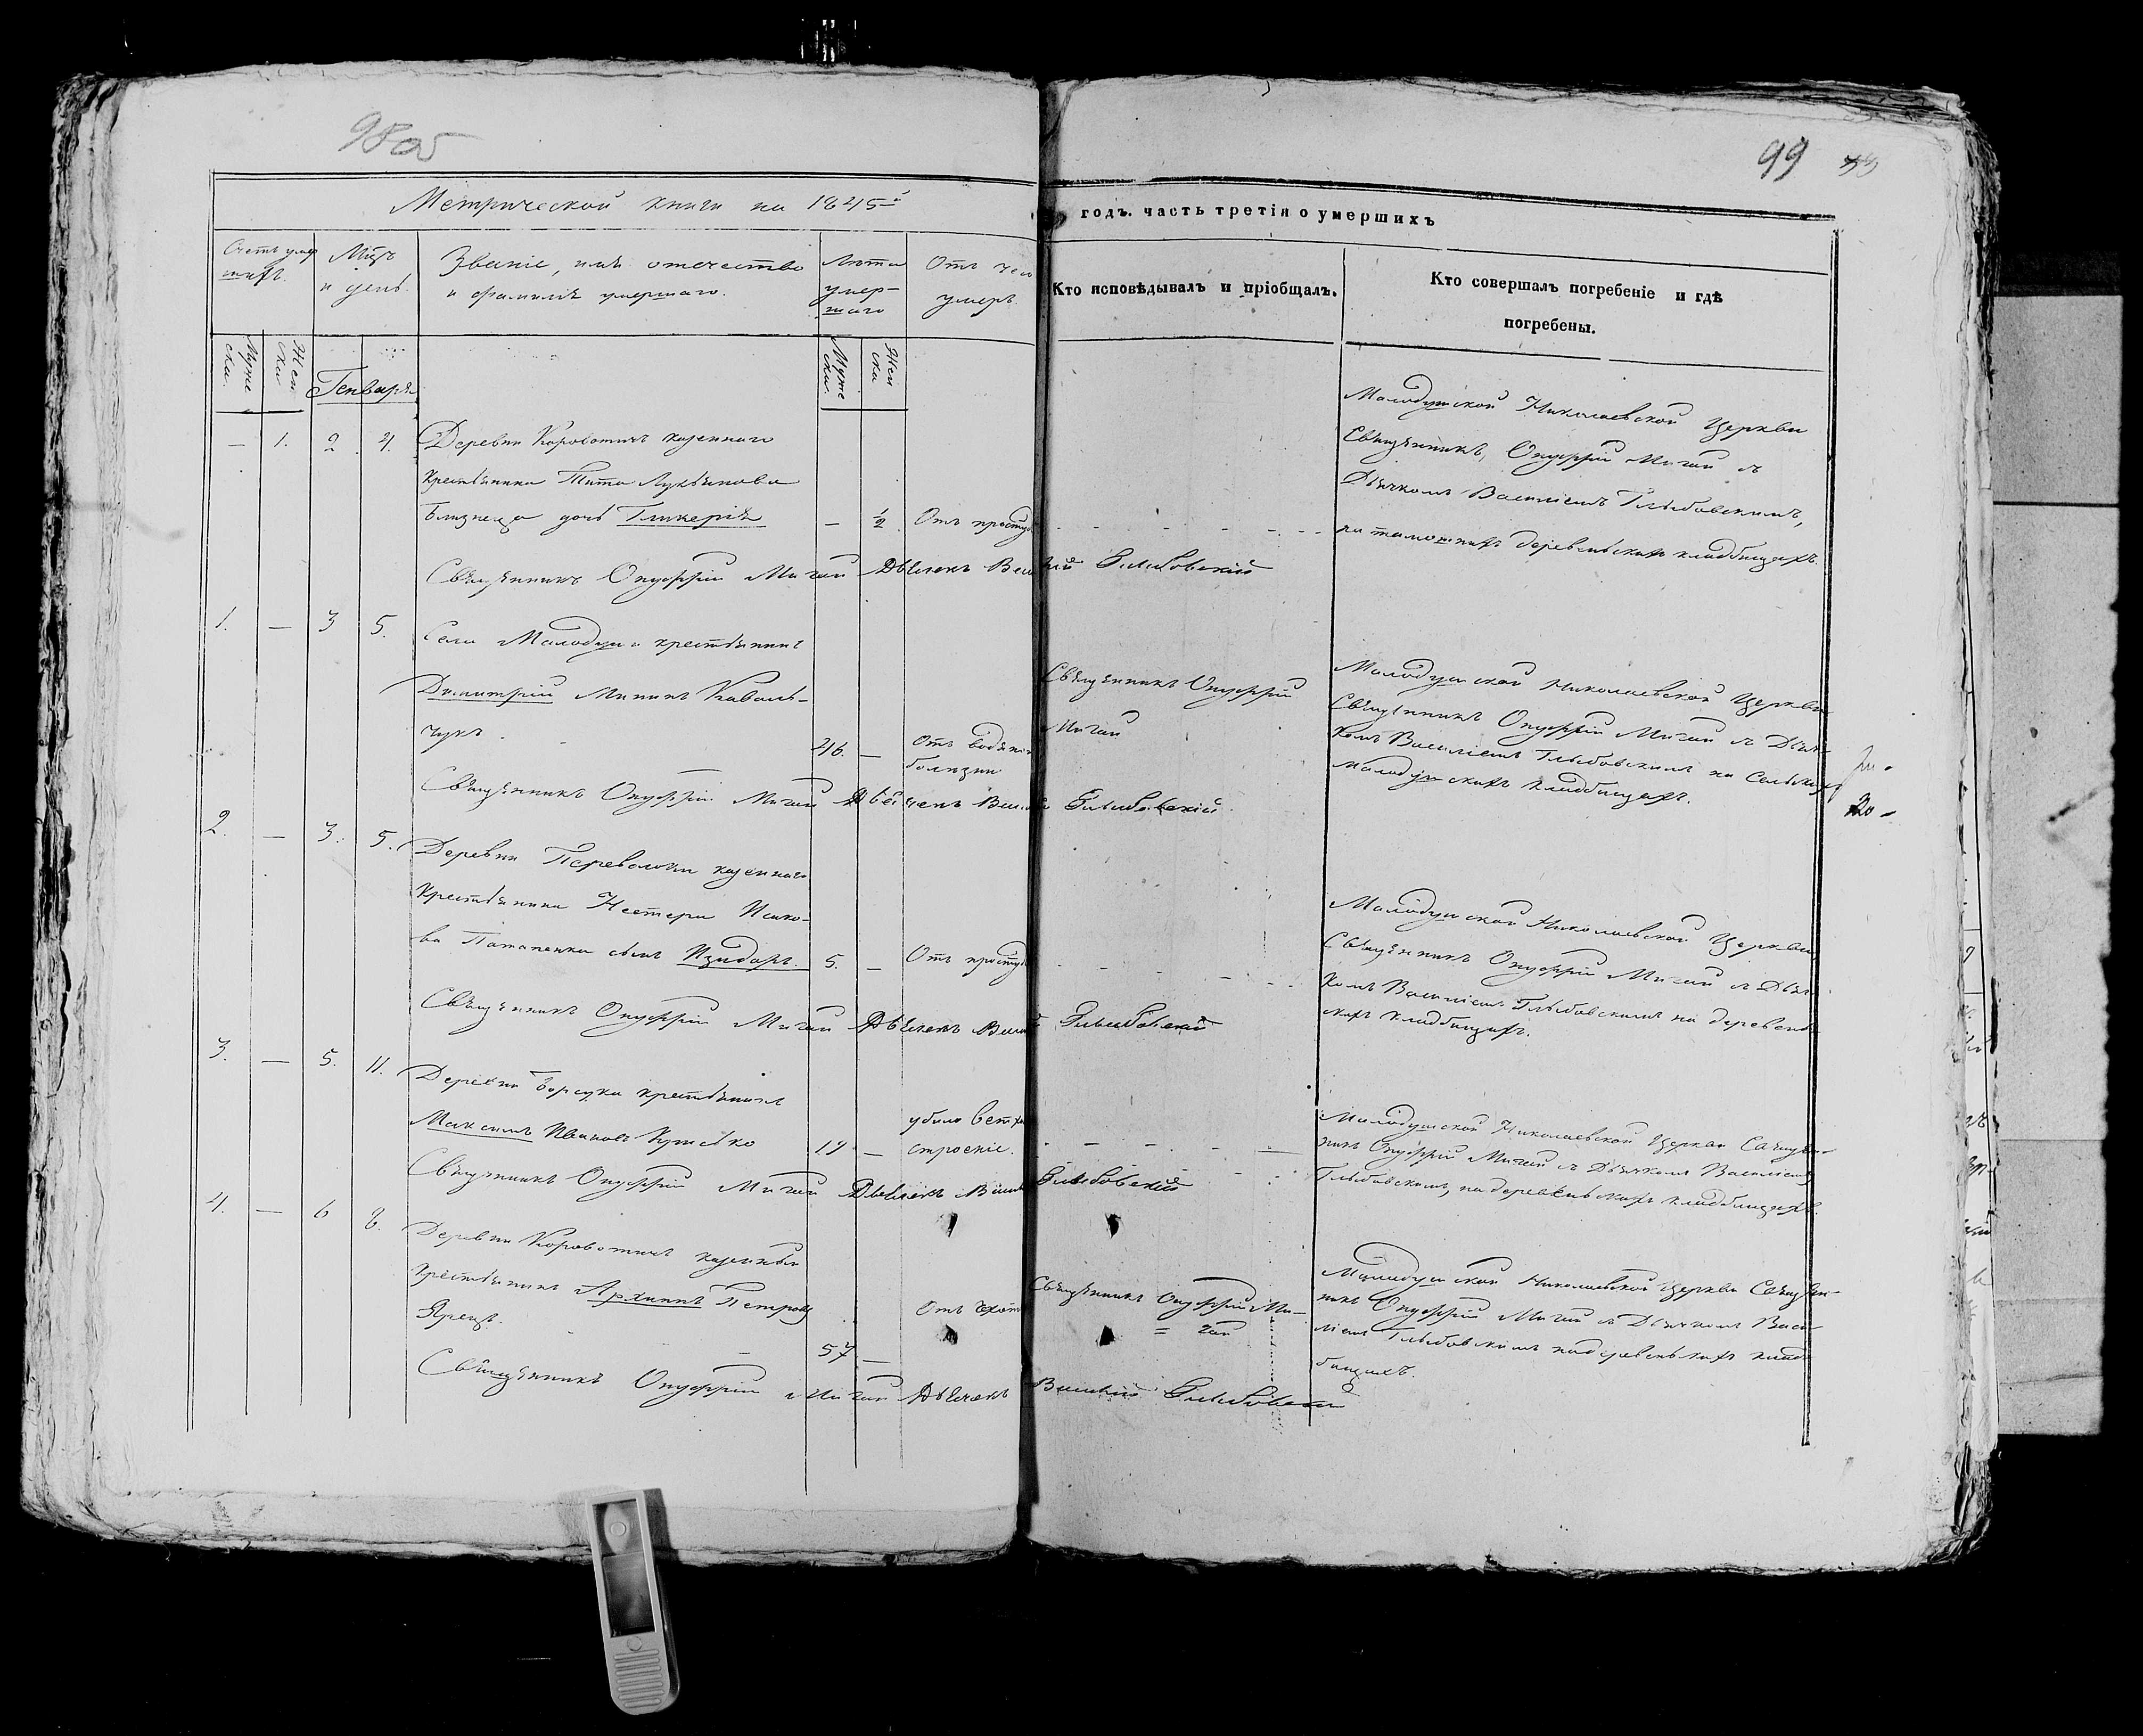 98 об
99
Метрической книги на 1845й
годъ. часть третія о умершихъ
Счетъ умер
шихъ.
Мѣц.
и день.
Званіе, имя отечество
и фамилія умершаго.
Лѣта
умер-
шаго
Отъ чего
умеръ.
Кто исповѣдывалъ и пріобщалъ.
Кто совершалъ погребеніе и гдѣ
погребены.
Муже
ска.
Жен
ска.
Генваря
Муже
ска.
Жен
ска
— 1. 2 4. Деревни Короватичъ казеннаго
крестьянина Тита Лукьянова
близнеца дочь Гликерія — ½ Отъ простуд
Малодушской Николаевской Церкви
Священникъ, Онуфрій Мигай съ
Дьячкомъ Василіемъ Глыбовскимъ,
на тамошнихъ деревенскихъ кладбищахъ.
Священникъ Онуфрій Мигай Дьячекъ Василій Глыбовскій
1. — 3 5. Села Малодуши крестьянинъ
Димитрій Мининъ Коваль-
чукъ. 46. — Отъ водяной
болѣзни
Священникъ Онуфрій
Мигай
Малодушской Николаевской Церкви
Священникъ Онуфрій Мигай съ Дьяч-
комъ Василіемъ Глыбовскимъ на Сельскихъ
Малодушскихъ кладбищахъ.
Священникъ Онуфрій Мигай Дьячекъ Василій Глыбовскій
2. — 3. 5. Деревни Переволоки казеннаго
крестьянина Нестера Исако-
ва Потапенка сынъ Изидоръ. 5. — Отъ простуд
Малодушской Николаевской Церкви
Священникъ Онуфрій Мигай съ Дьяч
комъ Василіемъ Глыбовскимъ на деревен
скихъ кладбищахъ.
Священникъ Онуфрій Мигай Дьячекъ Василій Глыбовскій
3. — 5. 11. Деревни Борсука крестьянинъ
Максимъ Ивановъ 19 — убило ветхо
строеніе.
Малодушской Николаевской Церкви Священ-
никъ Онуфрій Мигай съ Дьячкомъ Василіемъ
Глыбовскимъ, на деревенскихъ кладбищахъ.
Священникъ Онуфрій Мигай Дьячекъ Василій Глыбовскій
4. — 6 8. Деревни Короватичъ казенный
крестьянинъ Архипъ Петровъ
Ярецъ. 57 — Отъ чахот
Священникъ Онуфрій Ми-
= гай
Малодушской Николаевской Церкви Священ-
никъ Онуфрій Мигай съ Дьячкомъ Васи
ліемъ Глыбовскимъ на деревенскихъ клад-
бищахъ.
Священникъ Онуфрій Мигай Дьячекъ Василій Глыбовскій